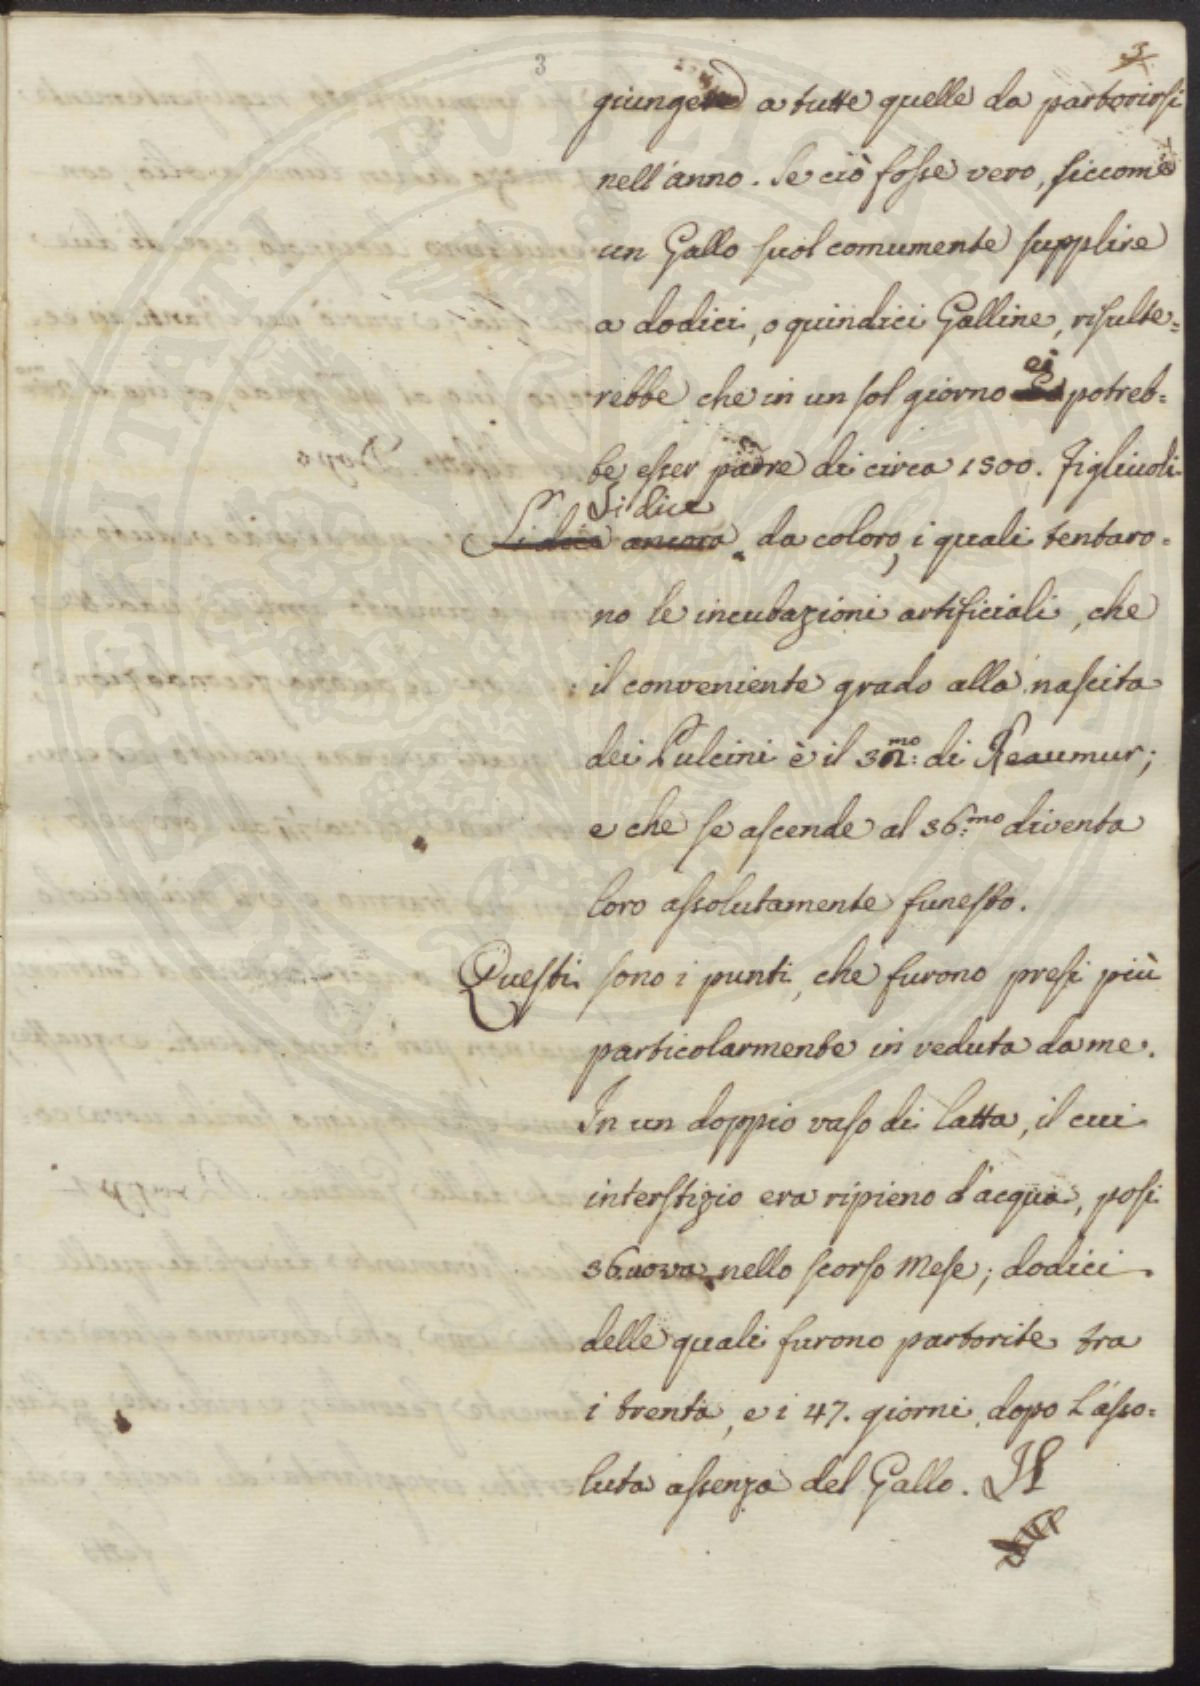 3 3
giungere a tutte quelle da partorirsi
nell'anno. Se ciò fosse vero, siccome
un Gallo suol comumente supplire
a dodici, o quindici Galline, risulte=
rebbe che in un sol giorno ei potreb=
be esser padre di circa 1500. Figliuoli.
Si dice
Si dice ancora da coloro, i quali tentaro=
no le incubazioni artificiali, che
il conveniente grado alla nascita
dei Pulcini è il 32.mo di Reaumur;
e che se ascende al 36.mo diventa
loro assolutamente funesto.
Questi sono i punti, che furono presi più
particolarmente in veduta da me.
In un doppio vaso di latta, il cui
interstizio era ripieno d'acqua, posi
36 uova nello scorso Mese; dodici
delle quali furono partorite tra
i trenta, e i 47. giorni dopo l'asso=
luta assenza del Gallo. Il